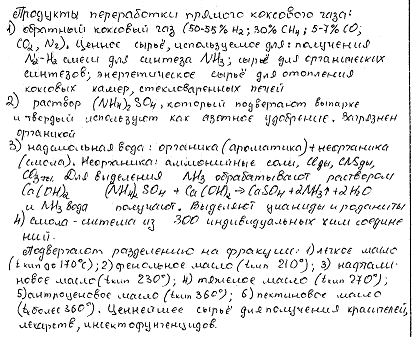 Продукты переработки прямого коксового газа:
1) обратный коксовый газ (50-55% H2; 30% CH4; 5-7% CO;
CO2, N2). Ценное сырьё, используемое для: получения
N2-H2 смеси для синтеза NH3; сырьё для органических
синтезов; энергетическое сырьё для отопления
коксовых камер, стекловаренных печей
2) раствор (NH4)2SO4, который подвергают выпарке
и твердый используют как азотное удобрение. Загрязнен
органикой
3) надсмольная вода: органика (ароматика) + неорганика
(смола). Неорганика: аммонийные соли,
Для выделения NH3 обрабатывают раствором
Ca(OH)2 (NH4)2SO4 + Ca(OH)2 → CaSO4 + 2NH3↑ + 2H2O
и NH3 вода получают. Выделяют цианиды и роданиты
4) смола - система из 300 индивидуальных хим соедине
ний.
Подвергают разделению на фракции: 1) легкое масло
(tкип до 170°C); 2) фенольное масло (tкип 210°); 3) нафтали-
новое масло (tкип 230°); 4) тяжелое масло (tкип 270°);
5) антраценовое масло (tкип 360°); 6) пектиновое масло
(t более 360°). Ценнейшее сырьё для получения красителей,
лекарств, инсектофунгицидов.